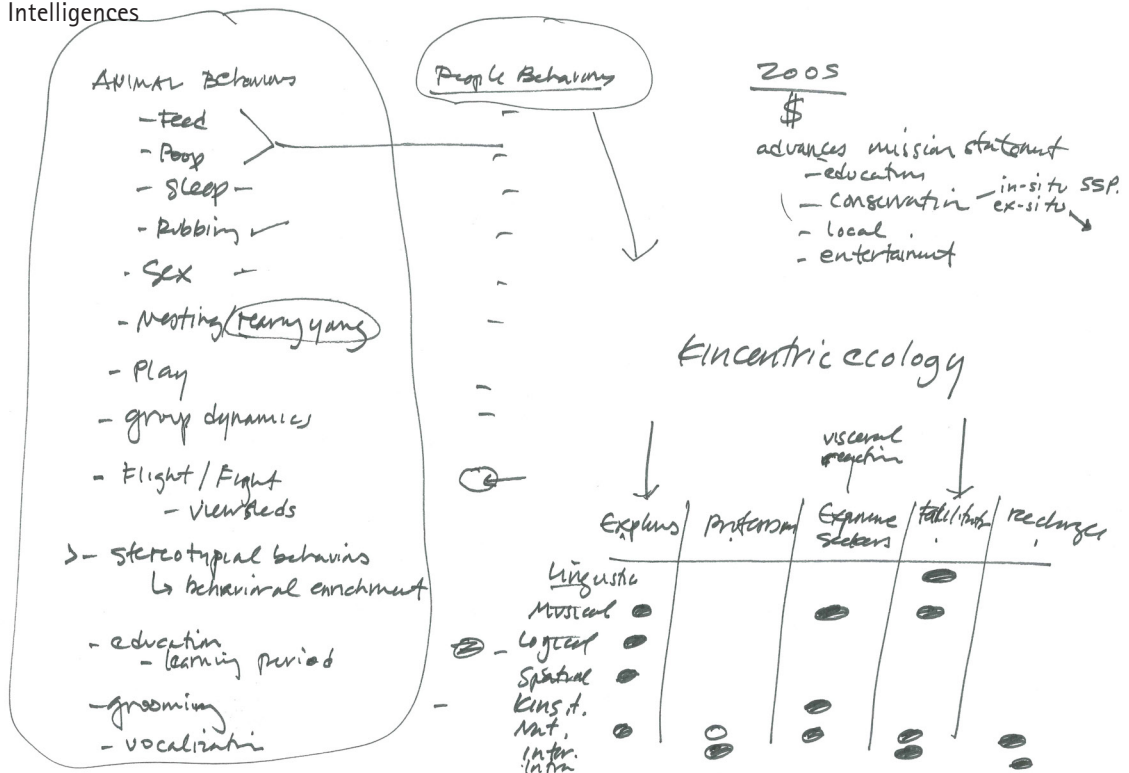 Intelligences
ANIMAL Behaviors
- Feed
- Poop
- Sleep -
- Rubbing
- Sex -
- Nesting/rearing young
- Play
- group dynamics
- Flight / Fight
- viewsheds
>- stereotypical behaviors
↳ behavioral enrichment
- education
- learning period
- grooming
- vocalization
People Behaviors
ZOOS
$
advances mission statement
- education
- conservation - in-situ SSP.
ex-situ
- local
- entertainment
Kincentric ecology
visceral
reaction
Explorers | Professional | Experience | Facilitator | recharger
Seekers
Linguistic
Musical
Logical
Spatial
Kinest.
Nat.
Inter.
Intra